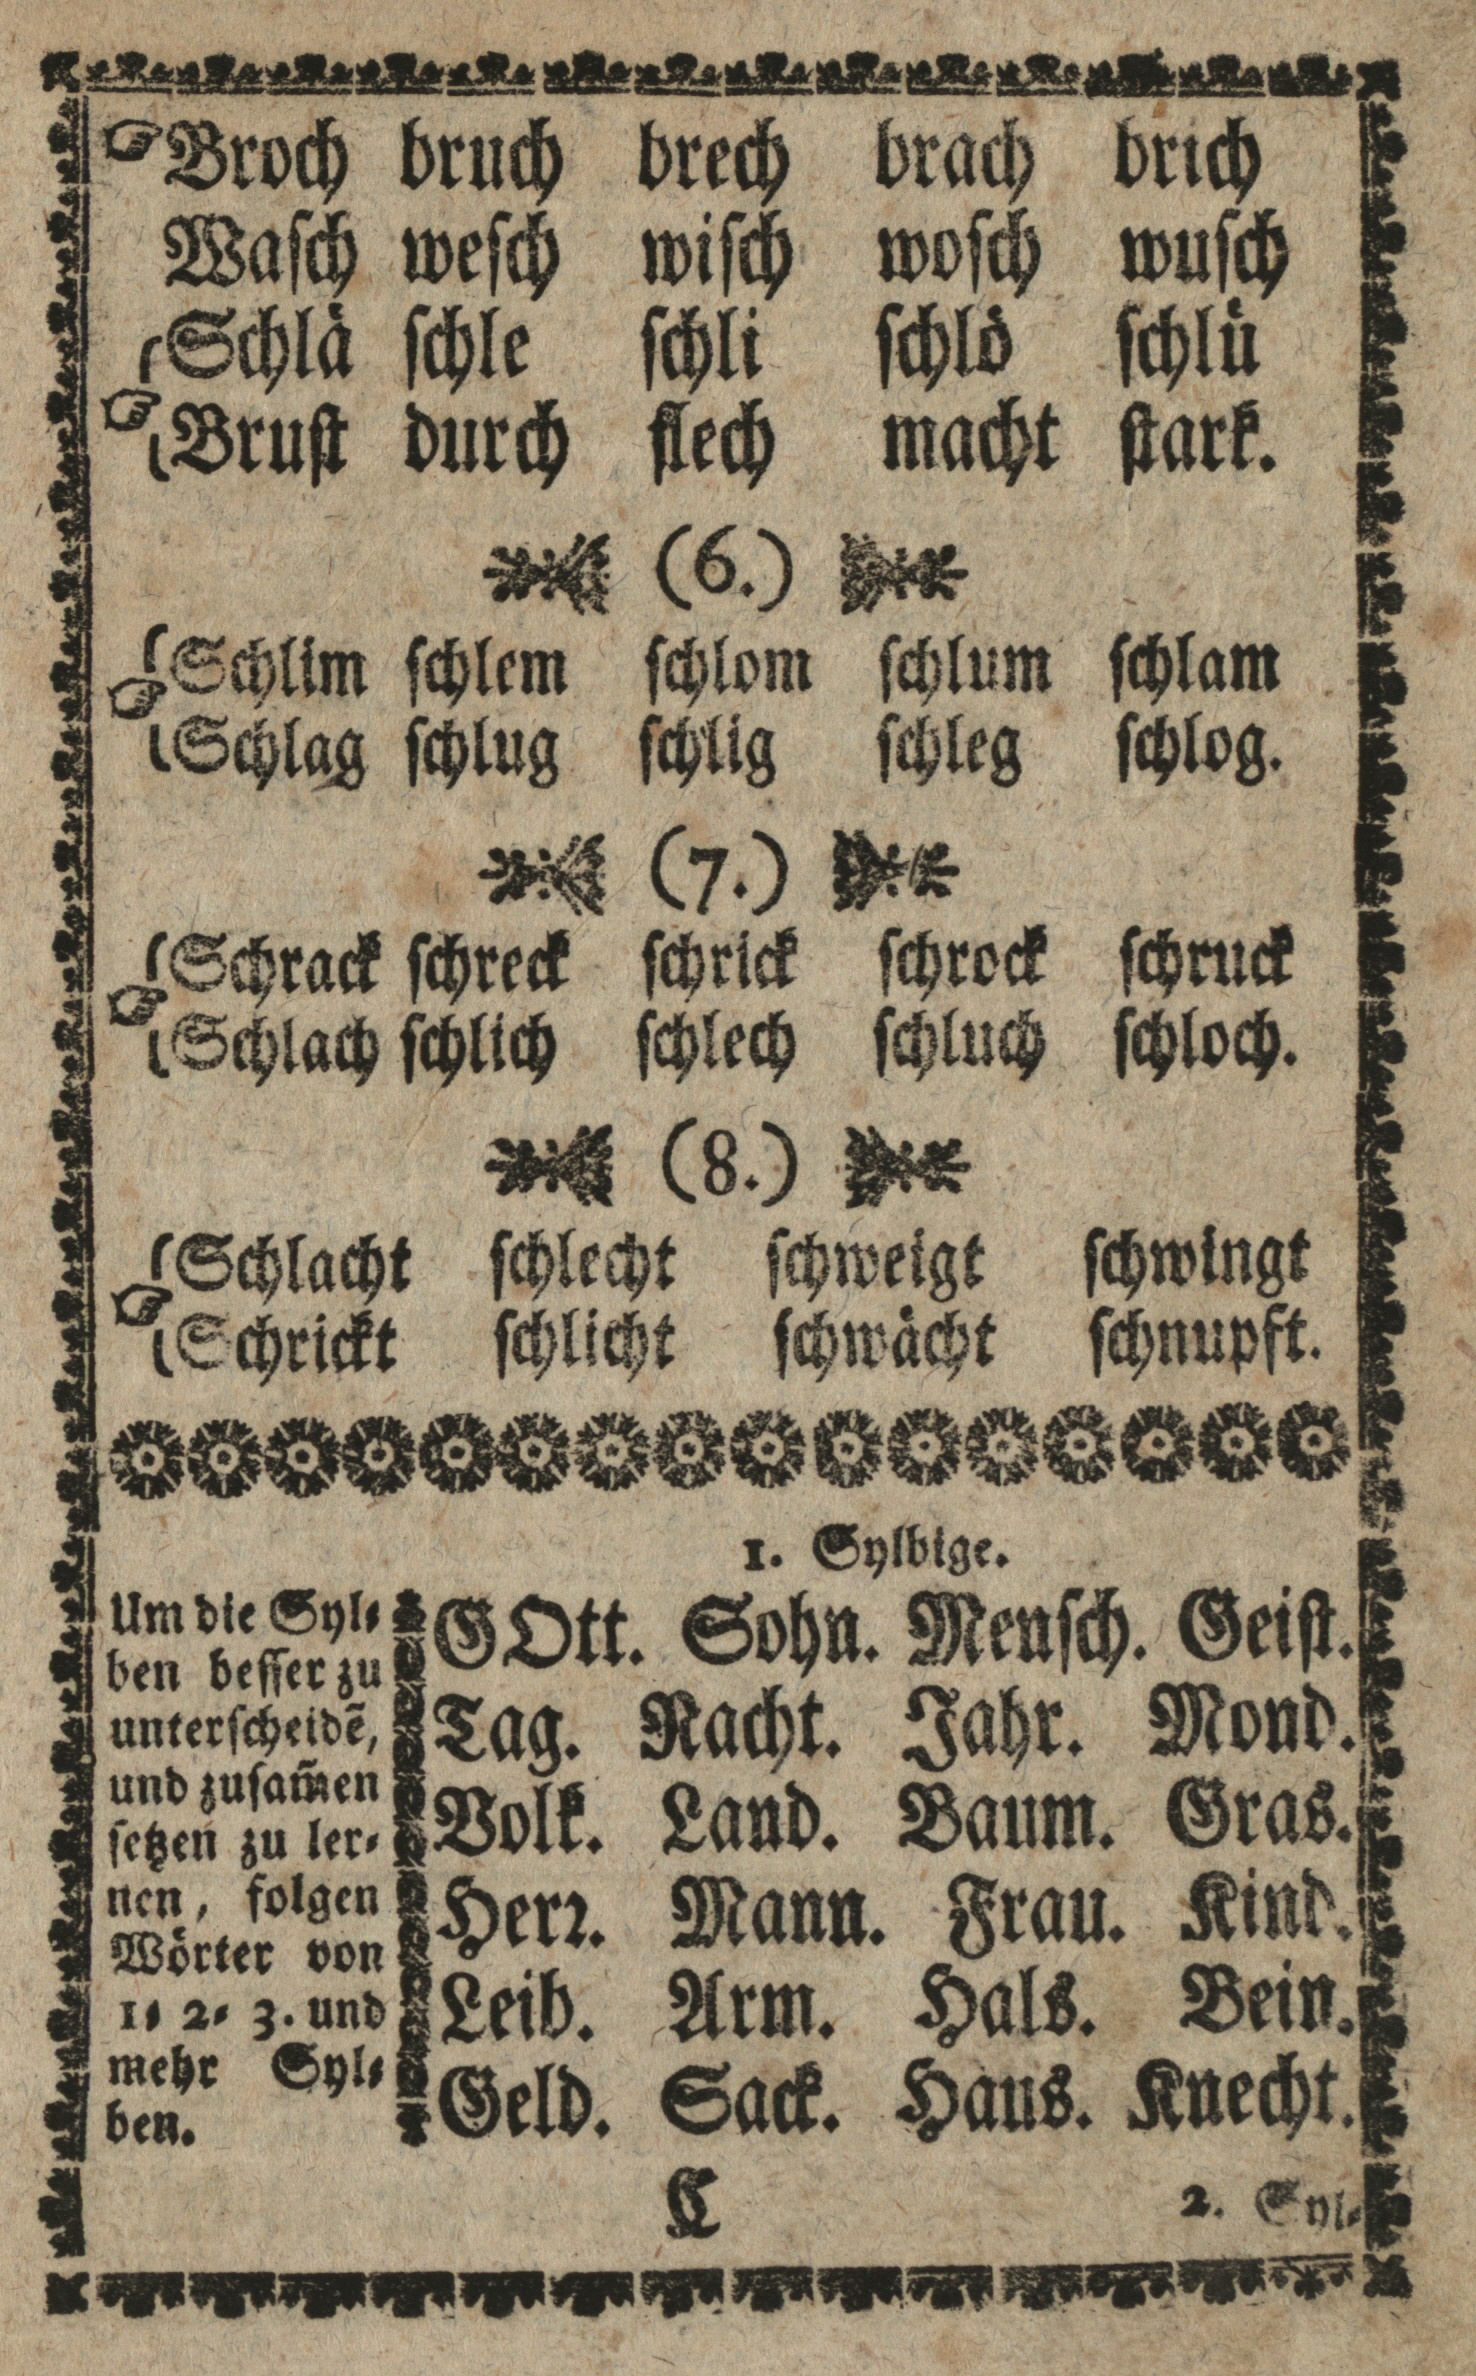 Broch bruch brech brach brich
Waſch weſch wiſch woſch wuſch
Schlä ſchle ſchli ſchlö ſchlü
Bruſt durch flech macht ſtark.
(6.)
Schlim ſchlem ſchlom ſchlum ſchlam
Schlag ſchlug ſchlig ſchleg ſchlog.
(7.)
Schrack ſchreck ſchrick ſchrock ſchruck
Schlach ſchlich ſchlech ſchluch ſchloch.
(8.)
Schlacht ſchlecht ſchweigt ſchwingt
Schrickt ſchlicht ſchwächt ſchnupft.
1. Sylbige.
Um die Syl⸗
ben beſſer zu
unterſcheidē,
und zuſam̃en
ſetzen zu ler⸗
nen, folgen
Wörter von
1⸗ 2⸗ 3. und
mehr Syl⸗
ben.
GOtt. Sohn. Menſch. Geiſt.
Tag. Nacht. Jahr. Mond.
Volk. Land. Baum. Gras.
Herꝛ. Mann. Frau. Kind.
Leib. Arm. Hals. Bein.
Geld. Sack. Haus. Knecht.
C
2. Syl⸗